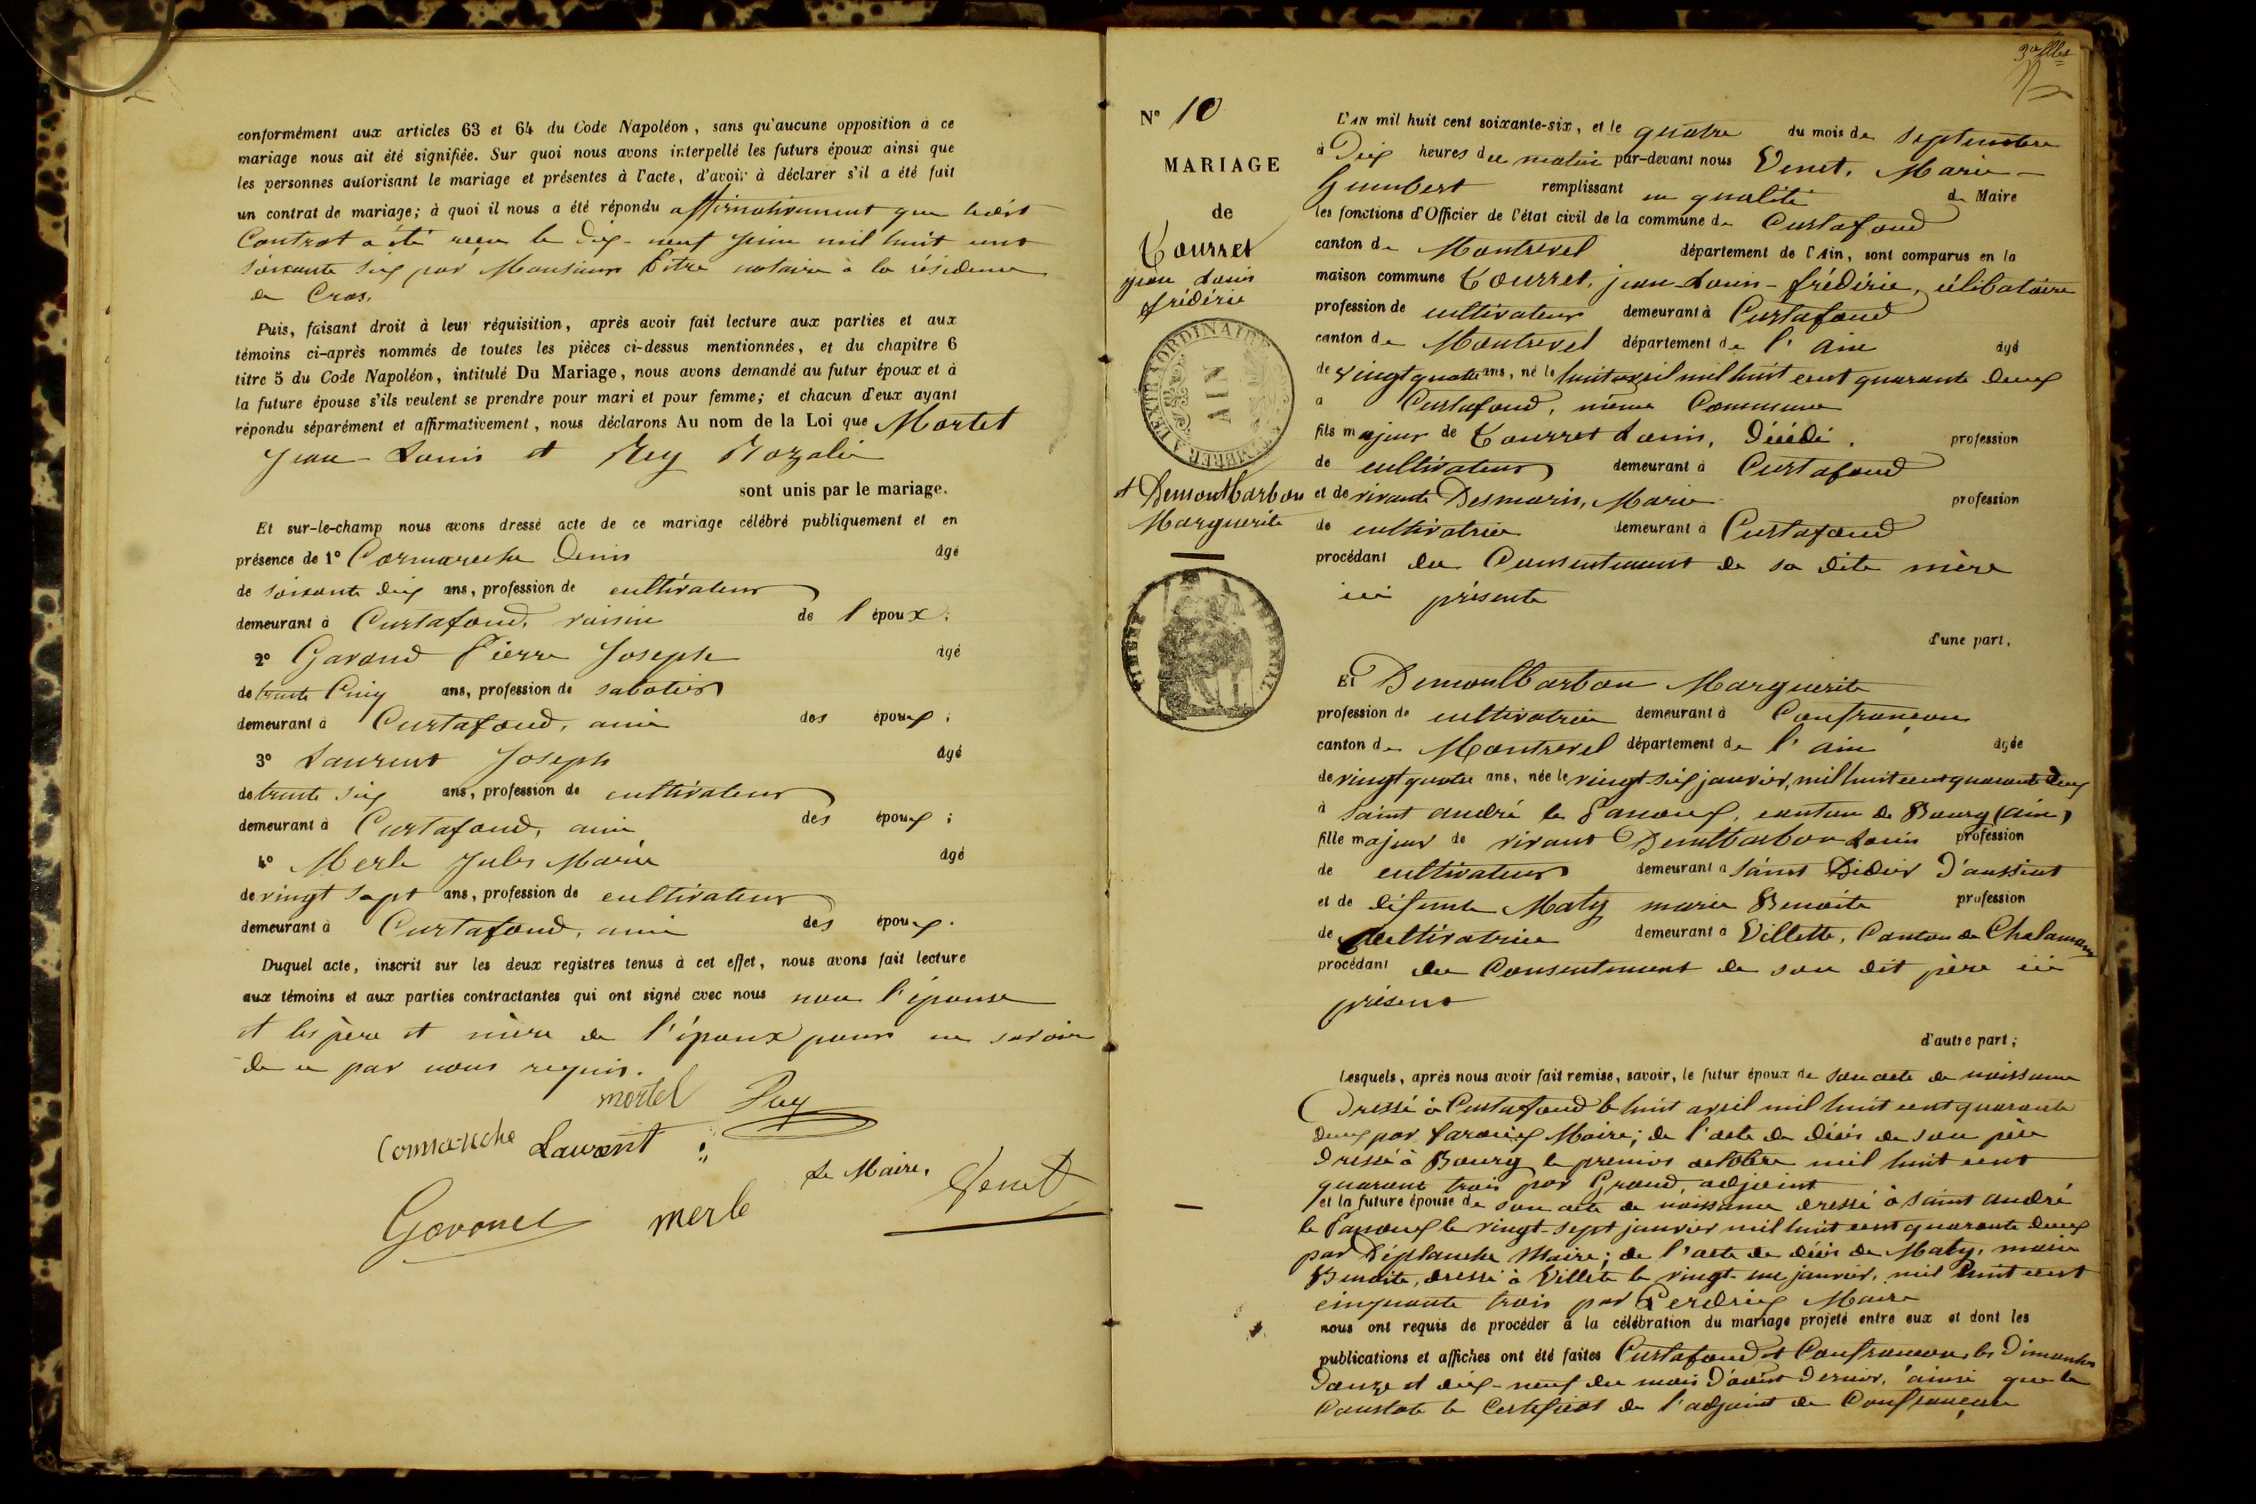 conformément aux articles 63 et 64 du Code Napoléon, sans qu'aucune opposition à ce
mariage nous ait été signifiée. Sur quoi nous avons interpellé les futurs époux ainsi que
les personnes autorisant le mariage et présentes à l'acte, d'avoir à déclarer s'il a été fait
un contrat de mariage; à quoi il nous a été répondu affirmativement que ledit
Contrat a été reçu le dix-neuf juin mil huit cent
soixante six par Monsieur notaire à la résidence
de Cras.
Puis, faisant droit à leur réquisition, après avoir fait lecture aux parties et aux
témoins ci-après nommés de toutes les pièces ci-dessus mentionnées, et du chapitre 6
titre 5 du Code Napoléon, intitulé Du Mariage, nous avons demandé au futur époux et à
la future épouse s'ils veulent se prendre pour mari et pour femme; et chacun d'eux ayant
répondu séparément et affirmativement, nous déclarons Au nom de la Loi que Mortel
Jean-Louis et Rozalie
sont unis par le mariage.
Et sur-le-champ nous avons dressé acte de ce mariage célébré publiquement et en
présence de 1° Cormareche Denis âgé
de soixante dix ans, profession de cultivateur
demeurant à Curtafond, voisin de l'époux;
2° Gavand Pierre Joseph âgé
de trente Cinq ans, profession de sabotier
demeurant à Curtafond, ami des époux;
3° Laurent Joseph âgé
de trente six ans, profession de cultivateur
demeurant à Curtafond, ami des époux;
4° Merle Jules Marie âgé
de vingt sept ans, profession de cultivateur
demeurant à Curtafond, ami des époux.
Duquel acte, inscrit sur les deux registres tenus à cet effet, nous avons fait lecture
aux témoins et aux parties contractantes qui ont signé avec nous non l'épouse
et les père et mère de l'époux pour ne savoir
de ce par nous requis.
mortel
Laurent
Le Maire,
Venet
merle
N° 10
MARIAGE
de
Tourret
jean Louis
frédéric
AIN
et Demontbarbon
Marguerite
TIMBRE IMPERIAL
L'AN mil huit cent soixante-six, et le quatre du mois de septembre
à Dix heures du matin par-devant nous Venet, Marie-
Humbert remplissant en qualité de Maire
les fonctions d'Officier de l'état civil de la commune de Curtafond
canton de Montrevel département de l'Ain, sont comparus en la
maison commune Tourret, jean-Louis-frédéric, célibataire
profession de cultivateur demeurant à Curtafond
canton de Montrevel département de l'ain âgé
de vingt quatre ans, né le huit avril mil huit cent quarante deux
à Curtafond, même Commune
fils majeur de Tourret Louis, Décédé. profession
de cultivateur demeurant à Curtafond
et de vivante Desmaris, Marie profession
de cultivatrice demeurant à Curtafond
procédant du Consentement de sa dite mère
ici présente
d'une part,
Et Demontbarbon Marguerite
profession de cultivatrice demeurant à Confrançon
canton de Montrevel département de l'ain âgée
de vingt quatre ans, née le vingt-six janvier, mil huit cent quarante deux
à saint andré le Panoux, canton de Bourg (ain)
fille majeur de vivant Louis profession
de cultivateur demeurant à Saint Didier D'aussiat
et de défunte Maty marie Benoite profession
de cultivatrice demeurant à Villette, Canton de Chalamont
procédant du Consentement de son dit père ici
présent
d'autre part;
Lesquels, après nous avoir fait remise, savoir, le futur époux de son acte de naissance
Dressé à Curtafond le huit avril mil huit cent quarante
deux par Maire; de l'acte de décès de son père
Dressé à Bourg le premier octobre mil huit cent
quarante trois par Grand adjoint
et la future épouse de son acte de naissance dressé à saint andré
le Panoux le vingt-sept janvier mil huit cent quarante deux
par Déplanche Maire; de l'acte de décès de Maty, marie
Benoite, dressé à Villette le vingt-un janvier, mil huit cent
cinquante trois par Perdrix Maire
nous ont requis de procéder à la célébration du mariage projeté entre eux et dont les
publications et affiches ont été faites Curtafond et Confrançon les Dimanches
Douze et dix-neuf du mois D'août Dernier, ainsi que le
Constate le Certificat de l'adjoint de Confrançon